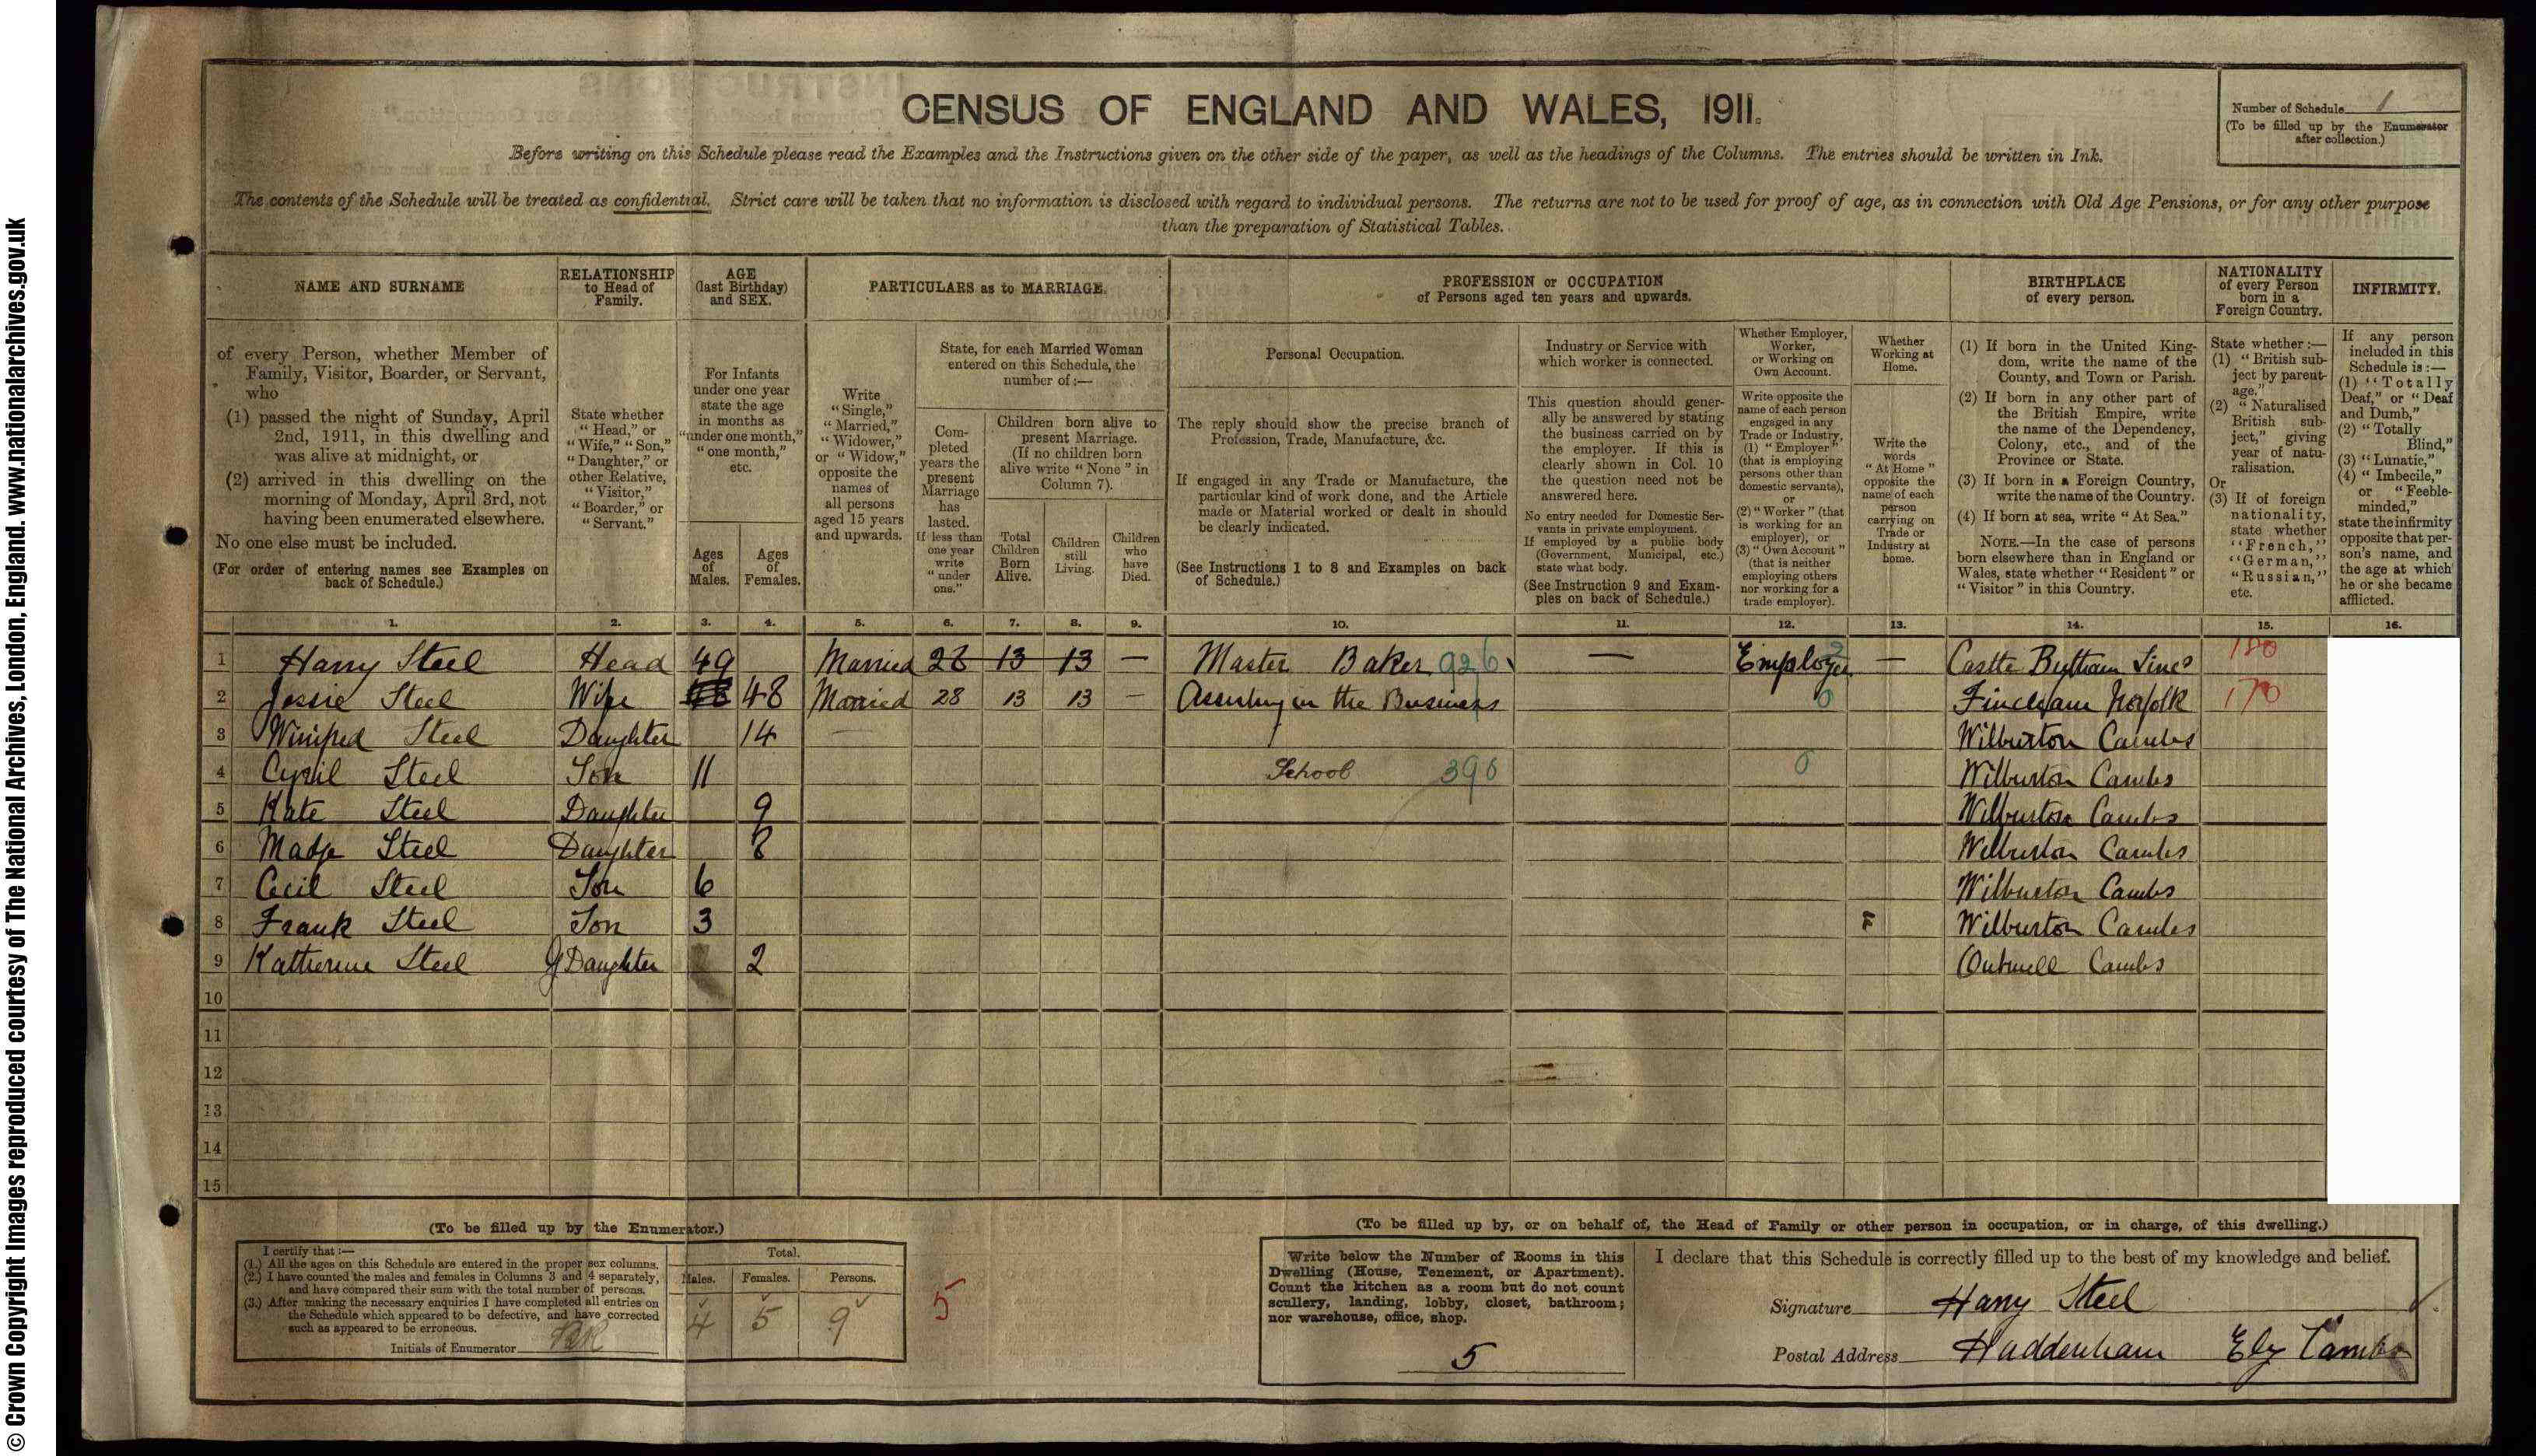 © Crown Copyright Images reproduced courtesy of The National Archives, London, England. www.nationalarchives.gov.uk
CENSUS OF ENGLAND AND WALES, 1911.
Number of Schedule 1
(To be filled up by the Enumerator after collection.)
Before writing on this Schedule please read the Examples and the Instructions given on the other side of the paper, as well as the headings of the Columns. The entries should be written in Ink.
The contents of the Schedule will be treated as confidential. Strict care will be taken that no information is disclosed with regard to individual persons. The returns are not to be used for proof of age, as in connection with Old Age Pensions, or for any other purpose
than the preparation of Statistical Tables.
NAME AND SURNAME
of every Person, whether Member of
Family, Visitor, Boarder, or Servant,
who
(1) passed the night of Sunday, April
2nd, 1911, in this dwelling and
was alive at midnight, or
(2) arrived in this dwelling on the
morning of Monday, April 3rd, not
having been enumerated elsewhere.
No one else must be included.
(For order of entering names see Examples on
back of Schedule.)
RELATIONSHIP
to Head of
Family.
State whether
"Head," or
"Wife," "Son,"
"Daughter," or
other Relative,
"Visitor,"
"Boarder," or
"Servant."
AGE
(last Birthday)
and SEX.
For Infants
under one year
state the age
in months as
"under one month,"
"one month,"
etc.
Ages
of
Males.
Ages
of
Females.
PARTICULARS as to MARRIAGE.
Write
"Single,"
"Married,"
"Widower,"
or "Widow,"
opposite the
names of
all persons
aged 15 years
and upwards.
State, for each Married Woman
entered on this Schedule, the
number of:—
Com-
pleted
years the
present
Marriage
has
lasted.
If less than
one year
write
"under
one."
Children born alive to
present Marriage.
(If no children born
alive write "None" in
Column 7).
Total
Children
Born
Alive.
Children
still
Living.
Children
who
have
Died.
PROFESSION or OCCUPATION
of Persons aged ten years and upwards.
Personal Occupation.
The reply should show the precise branch of
Profession, Trade, Manufacture, &c.
If engaged in any Trade or Manufacture, the
particular kind of work done, and the Article
made or Material worked or dealt in should
be clearly indicated.
(See Instructions 1 to 8 and Examples on back
of Schedule.)
Industry or Service with
which worker is connected.
This question should gener-
ally be answered by stating
the business carried on by
the employer. If this is
clearly shown in Col. 10
the question need not be
answered here.
No entry needed for Domestic Ser-
vants in private employment.
If employed by a public body
(Government, Municipal, etc.)
state what body.
(See Instruction 9 and Exam-
ples on back of Schedule.)
Whether Employer,
Worker,
or Working on
Own Account.
Write opposite the
name of each person
engaged in any
Trade or Industry,
(1) "Employer"
(that is employing
persons other than
domestic servants),
or
(2) "Worker" (that
is working for an
employer), or
(3) "Own Account"
(that is neither
employing others
nor working for a
trade employer).
Whether
Working at
Home.
Write the
words
"At Home"
opposite the
name of each
person
carrying on
Trade or
Industry at
home.
BIRTHPLACE
of every person.
(1) If born in the United King-
dom, write the name of the
County, and Town or Parish.
(2) If born in any other part of
the British Empire, write
the name of the Dependency,
Colony, etc., and of the
Province or State.
(3) If born in a Foreign Country,
write the name of the Country.
(4) If born at sea, write "At Sea."
NOTE.—In the case of persons
born elsewhere than in England or
Wales, state whether "Resident" or
"Visitor" in this Country.
NATIONALITY
of every Person
born in a
Foreign Country.
State whether:—
(1) "British sub-
ject by parent-
age,"
(2) "Naturalised
British sub-
ject," giving
year of natu-
ralisation.
Or
(3) If of foreign
nationality,
state whether
"French,"
"German,"
"Russian,"
etc.
INFIRMITY.
If any person
included in this
Schedule is:—
(1) "Totally
Deaf," or "Deaf
and Dumb,"
(2) "Totally
Blind,"
(3) "Lunatic,"
(4) "Imbecile,"
or "Feeble-
minded,"
state the infirmity
opposite that per-
son's name, and
the age at which
he or she became
afflicted.
1. 2. 3. 4. 5. 6. 7. 8. 9. 10. 11. 12. 13. 14. 15. 16.
1 Harry Steel Head 49 Married 28 13 13 — Master Baker 926 — Employer 2 — Castle Bytham Lincs 180
2 Jessie Steel Wife 48 Married 28 13 13 — Assisting in the Business 0 Fincham Norfolk 170
3 Winifred Steel Daughter 14 Wilburton Cambs
4 Cyril Steel Son 11 School 390 0 Wilburton Cambs
5 Kate Steel Daughter 9 Wilburton Cambs
6 Madge Steel Daughter 8 Wilburton Cambs
7 Cecil Steel Son 6 Wilburton Cambs
8 Frank Steel Son 3 F Wilburton Cambs
9 Katherine Steel G Daughter 2 Outwell Cambs
10
11
12
13
14
15
(To be filled up by the Enumerator.)
I certify that:—
(1.) All the ages on this Schedule are entered in the proper sex columns.
(2.) I have counted the males and females in Columns 3 and 4 separately,
and have compared their sum with the total number of persons.
(3.) After making the necessary enquiries I have completed all entries on
the Schedule which appeared to be defective, and have corrected
such as appeared to be erroneous.
Initials of Enumerator
Total.
Males. Females. Persons.
4 5 9
5
(To be filled up by, or on behalf of, the Head of Family or other person in occupation, or in charge, of this dwelling.)
Write below the Number of Rooms in this
Dwelling (House, Tenement, or Apartment).
Count the kitchen as a room but do not count
scullery, landing, lobby, closet, bathroom;
nor warehouse, office, shop.
5
I declare that this Schedule is correctly filled up to the best of my knowledge and belief.
Signature Harry Steel
Postal Address Haddenham Ely Cambs